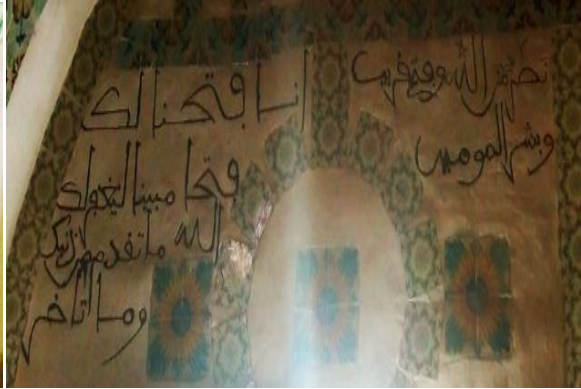 نصر من الله وفتح قريب
وبشر المومنين
انا فتحنا لك
فتحا مبينا ليغفر لك
الله ما تقدم من ذنبك
وما تاخر